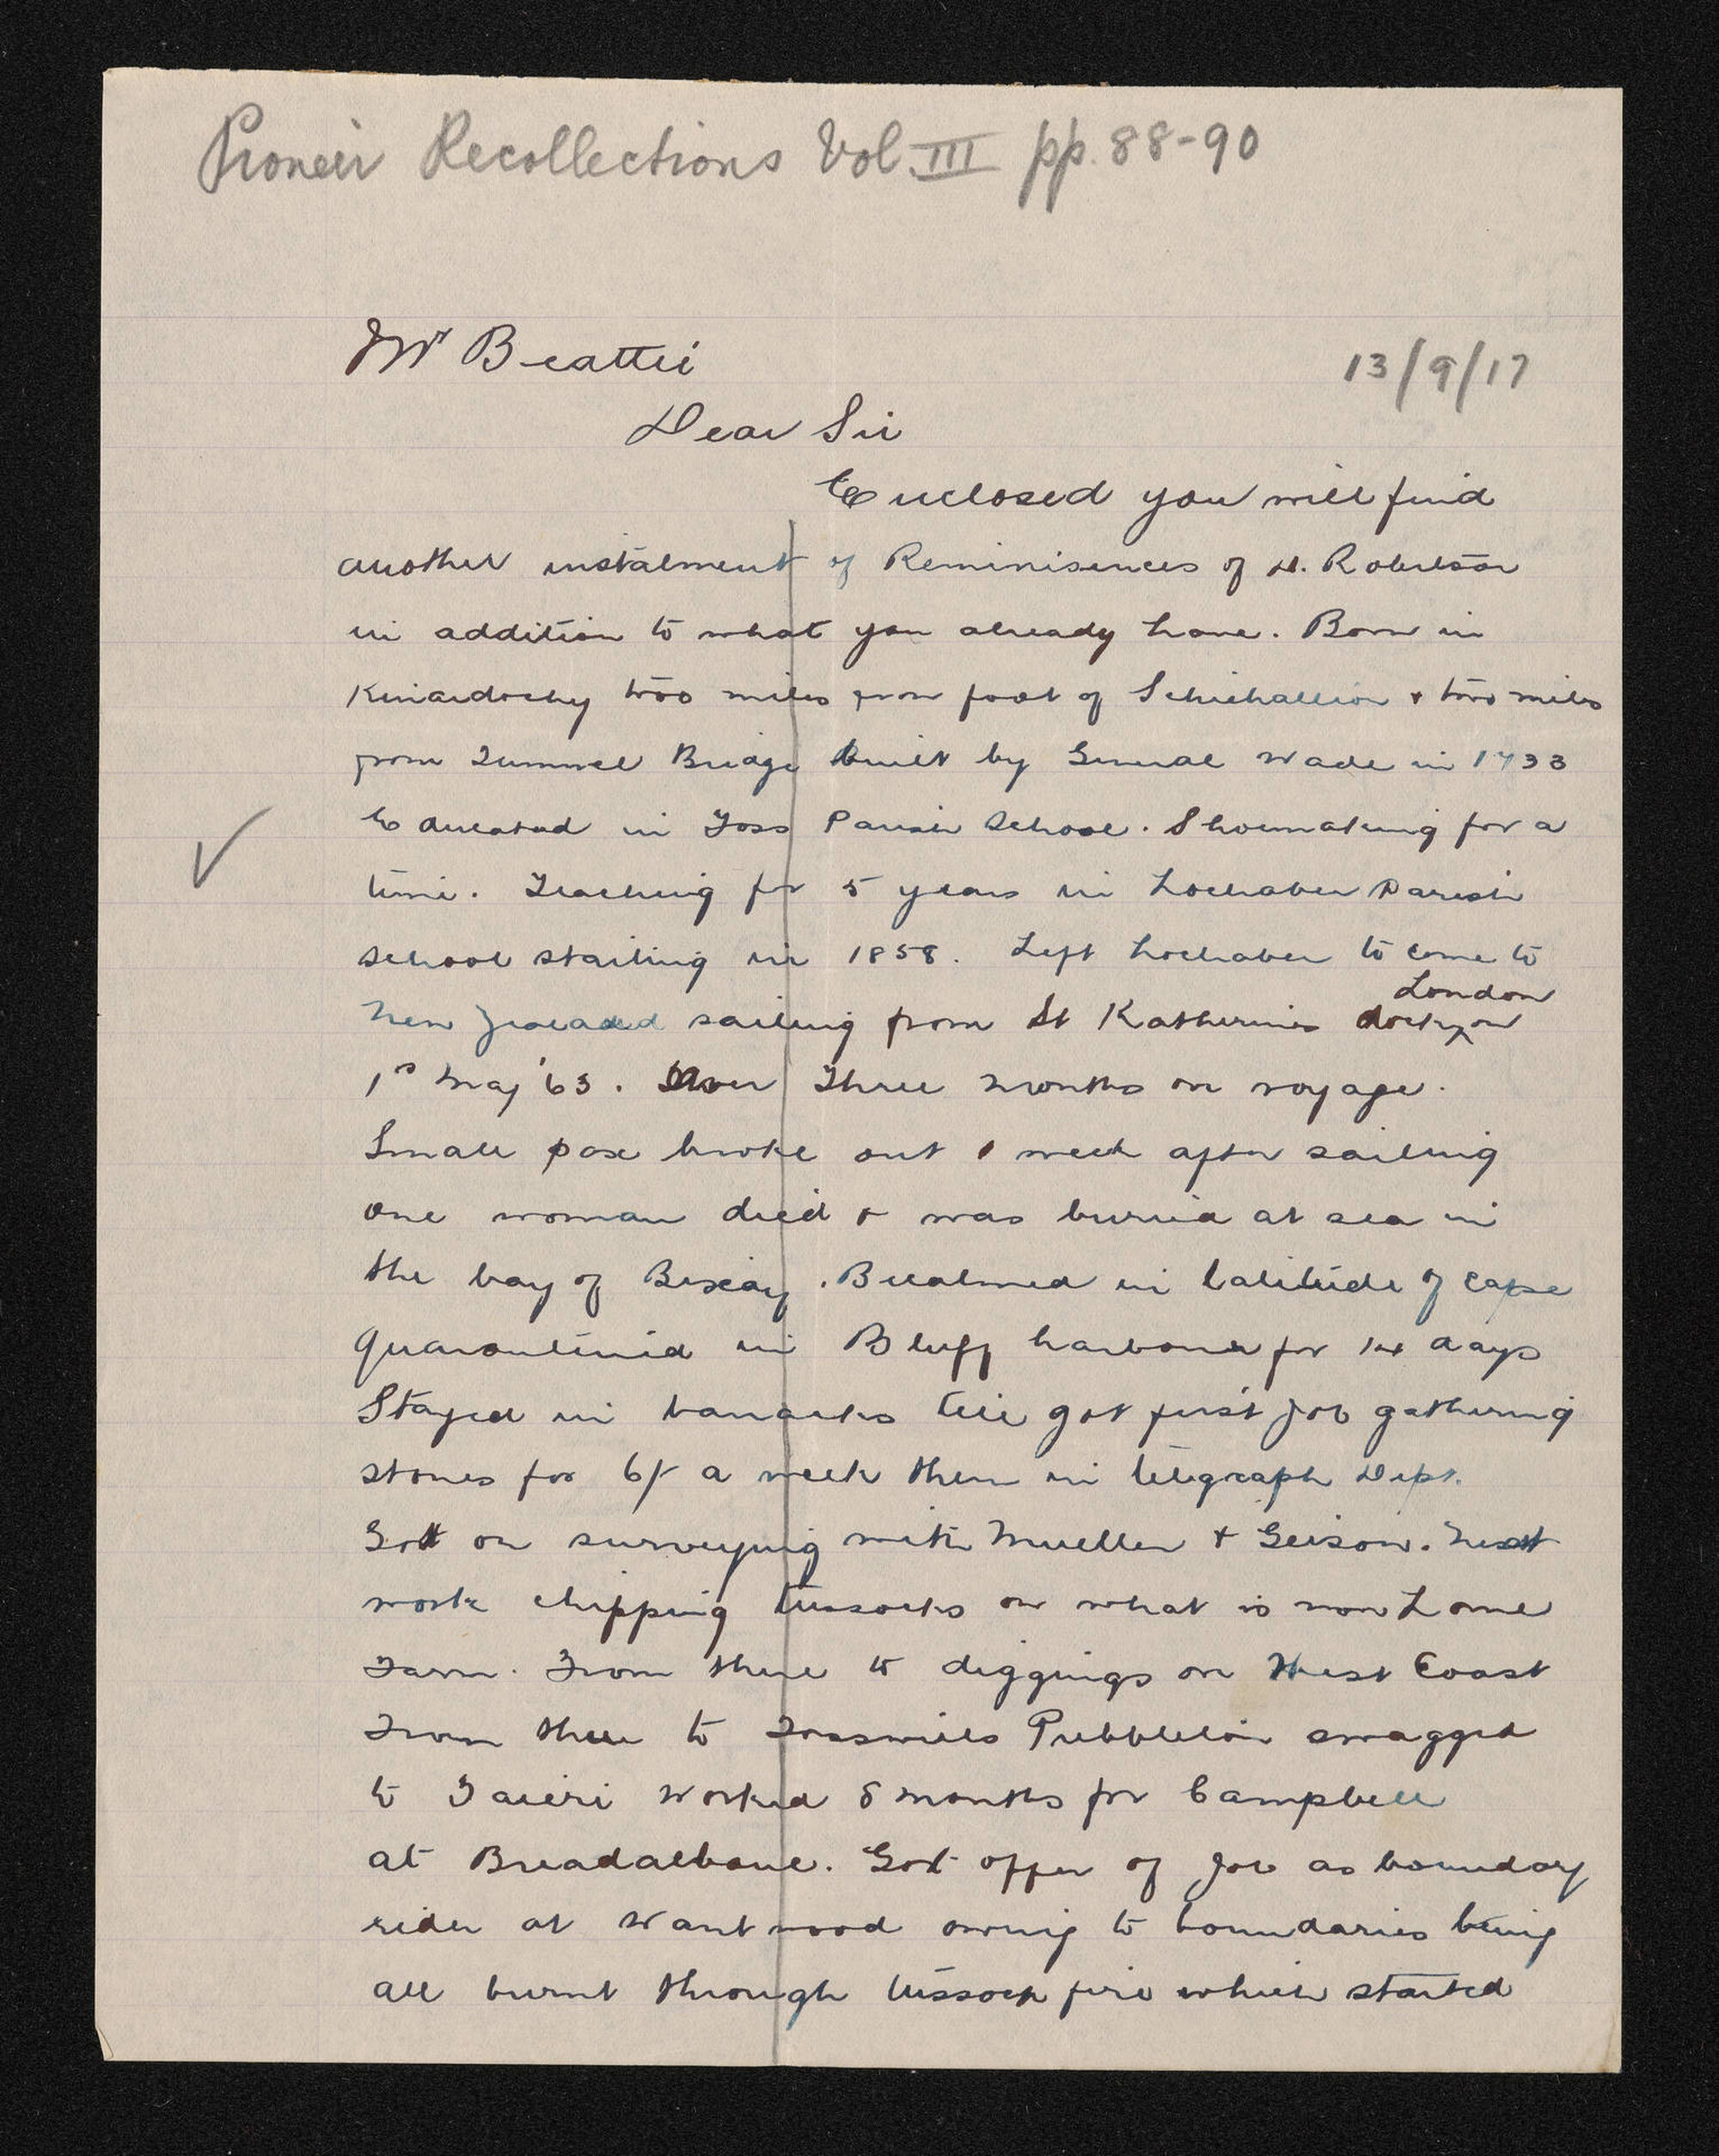 Pioneer Recollections Vol. III pp. 88-90
Mr Beattie
13/9/17
Dear Sir
Enclosed you will find
another instalment of Reminisences of D. Robertson
in addition to what you already have. Born in
Kinardochy two miles from foot of Schiehallion & two miles
from Tummel Bridge built by General Wade in 1733
Educated in Foss Parish School. Shoemaking for a
time. Teaching for 5 years in Lochaber Parish
School starting in 1858. Left Lochaber to come to
New Zealand sailing from St Katherines docks London on
1st May '63. Over Three months on voyage.
Small pox broke out 1 week after sailing
one woman died & was buried at sea in
the bay of Biscay. Becalmed in latitude of Cape
Quarantined in Bluff harbour for 14 days
Stayed in barracks till got first job gathering
stones for 6/- a week then in telegraph Dept.
Got on surveying with Mueller & Geison. Next
work chipping tussocks on what is now Lorne
Farm. From there to diggings on West Coast
From there to Prebbleton swagged
to Taieri worked 8 months for Campbell
at Breadalbane. Got offer of job as boundary
rider at Wantwood owing to boundaries being
all burnt through tussock fire which started